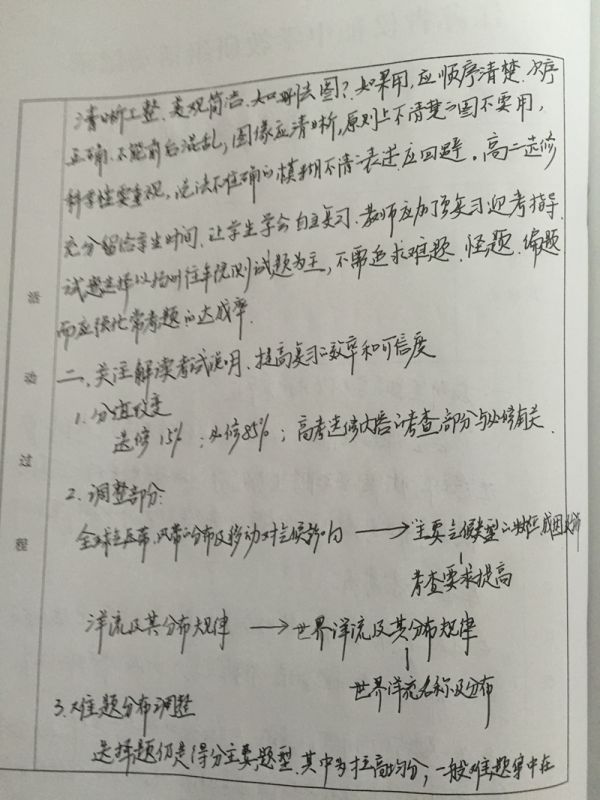 清晰工整、美观简洁、如何判图？如果用，应顺序清楚、次序
正确、不能前后混乱，图像应清晰，原则上不清楚的图不要用，
科学性要重视，说法不准确的模糊不清的表述应回避。高二选修
充分留给学生时间，让学生学会自主复习。教师应加强复习迎考指导，
试题选择以扬州往年统测试题为主，不需追求难题、怪题、偏题
而应强化常考题的达成率。
二、关注解读考试说明、提高复习的效率和可信度
1. 分值设定
选修15%；必修85%；高考选修内容的考查部分与必修有关。
2. 调整部分：
全球气压带、风带的分布及移动对气候影响 → 主要气候类型的特征成因及分布
考查要求提高
洋流及其分布规律 → 世界洋流及其分布规律
世界洋流名称及分布
3. 难题分布调整
选择题仍是得分主要题型、其中为拉高均分，一般难题穿中在
活动过程